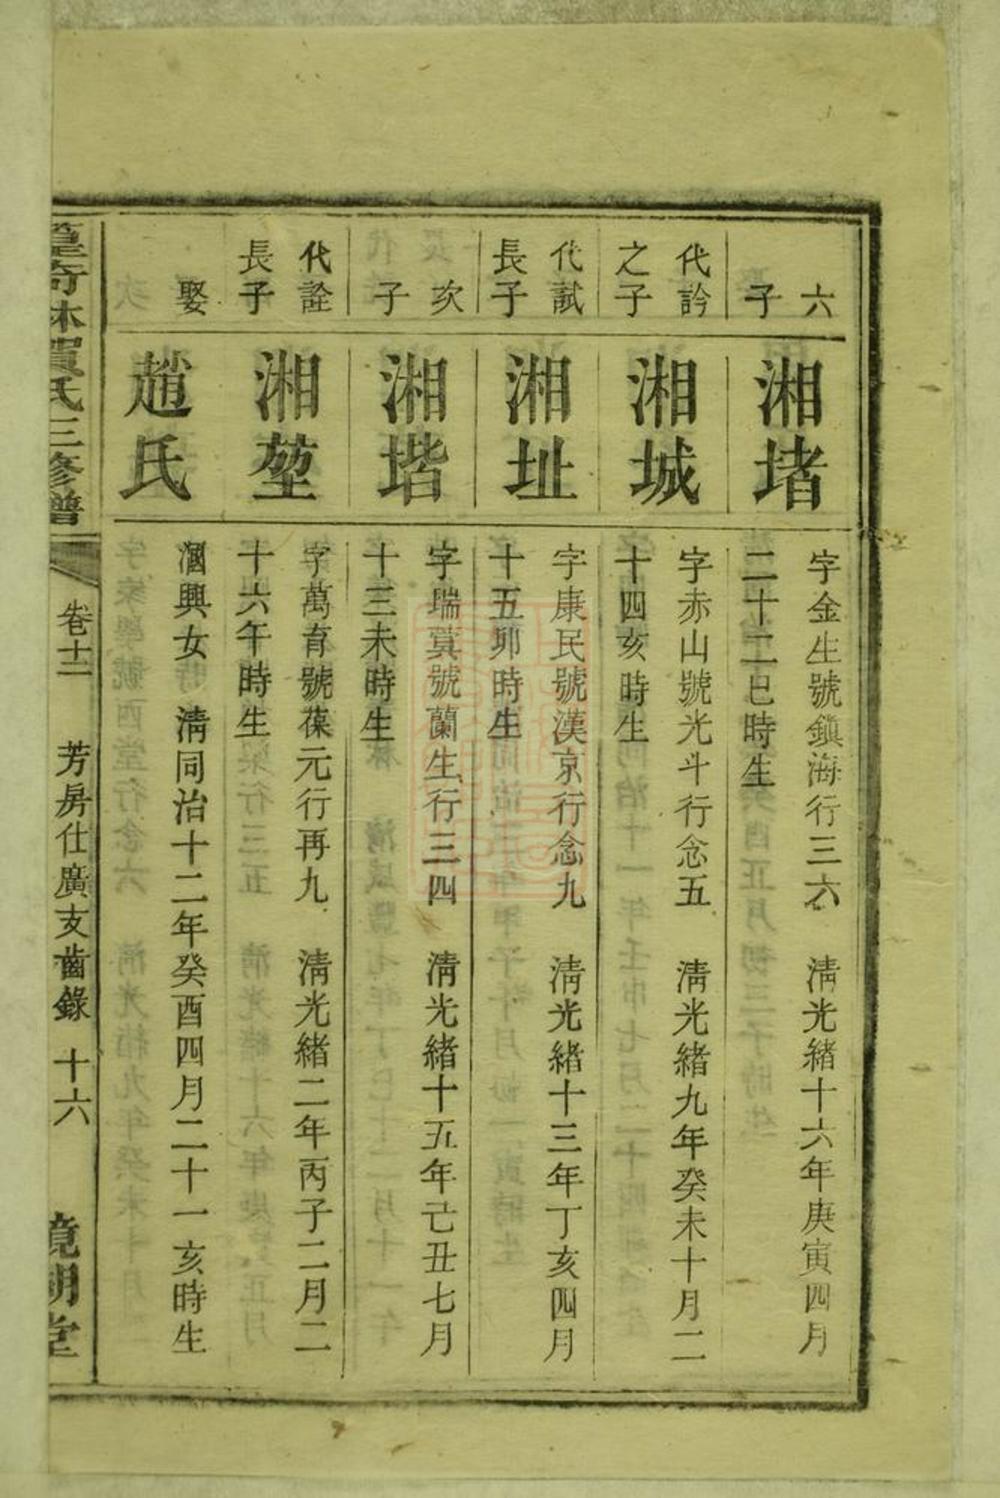 六子
湘堵
字金生號鎮海行三六　清光緒十六年庚寅四月
二十二巳時生
代詅之子
湘城
字赤山號光斗行念五　清光緒九年癸未十月二
十四亥時生
代試長子
湘址
字康民號漢京行念九　清光緒十三年丁亥四月
十五卯時生
次子
湘堦
字瑞蓂號蘭生行三四　清光緒十五年己丑七月
十三未時生
代詮長子
湘堃
字萬育號葆元行再九　清光緒二年丙子二月二
十六午時生
娶
趙氏
溷興女　清同治十二年癸酉四月二十一亥時生
奇林賀氏三修譜
卷十二
芳房仕廣支齒錄　十六
鏡湖堂